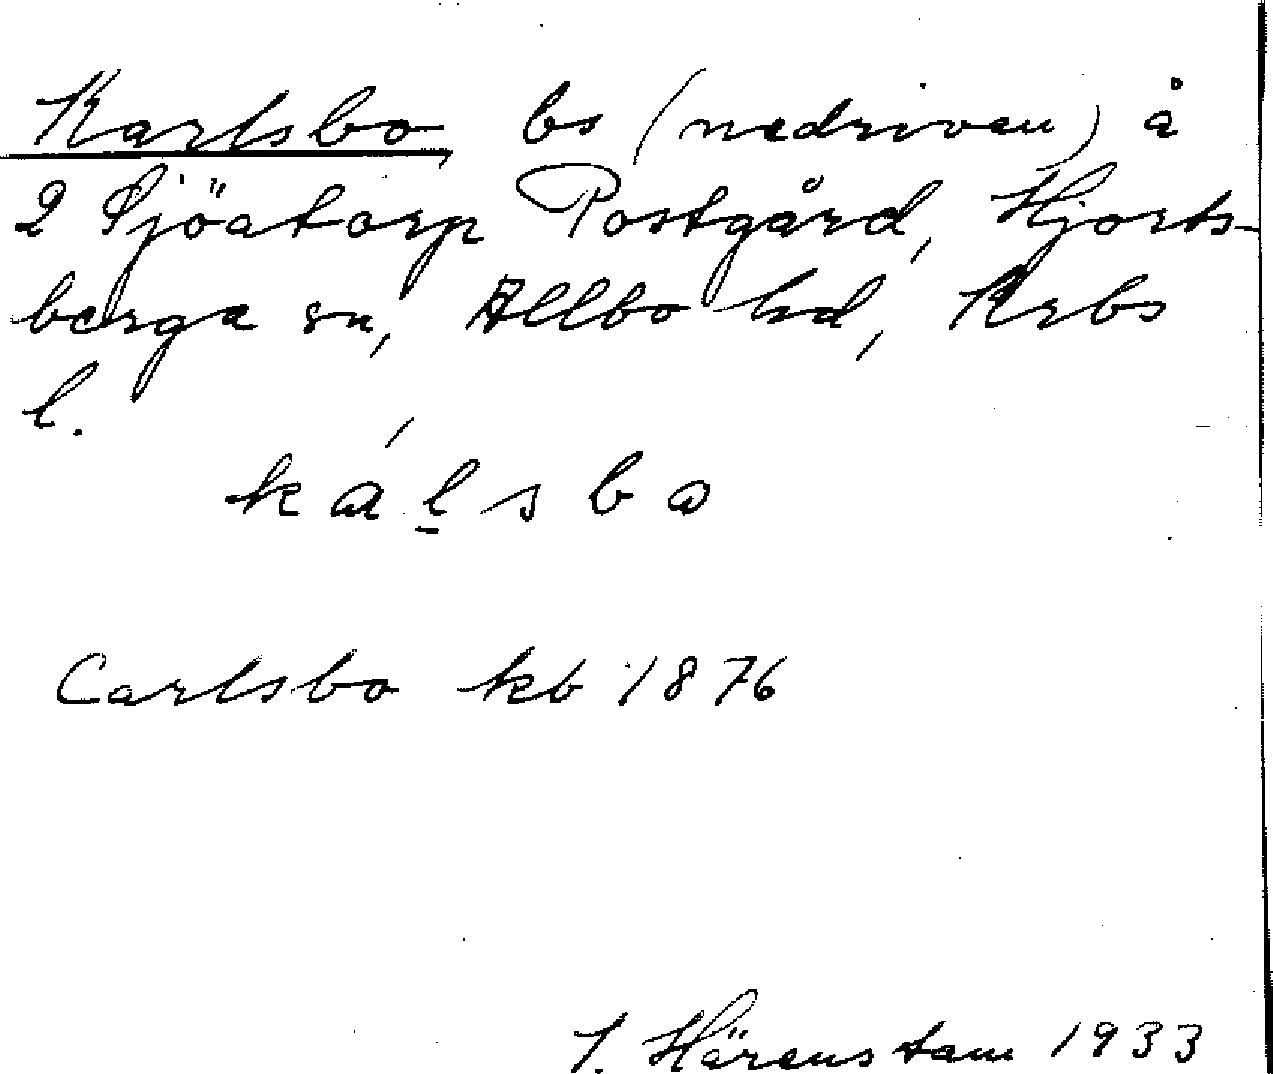 Karlsbo, bs (nedriven) å
2 Sjöatorp Postgård, Hjorts-
berga sn, Allbo hd, Krbs
l.
ká̀l̠sbo
Carlsbo kb 1876
I. Härenstam 1933